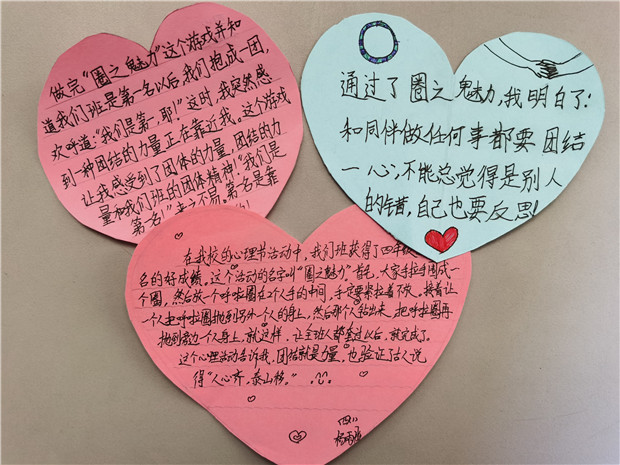 做完“圈之魅力”这个游戏并知
道我们班是第一名以后我们抱成一团,
欢呼道:“我们是第一,耶!”这时,我突然感
到一种团结的力量正在靠近我。这个游戏
让我感受到了团体的力量,团结的力
量和我们班的团体精神!“我们是
第一名!”来之不易。第一名是靠
通过了圈之魅力,我明白了:
和同伴做任何事都要团结
一心,不能总觉得是别人
的错,自己也要反思!
在我校的心理节活动中,我们班获得了四年级
名的好成绩。这个活动的名字叫“圈之魅力”首先,大家手拉手围成一
个圈,然后放一个呼啦圈在2个人手的中间,手一定要紧拉着不放。接着让
一个人把呼啦圈抛到另外一个人的身上,然后那个钻出来,把呼啦圈再
抛到旁边一个人身上,就这样,让全班人都套过以后,就完成了。
这个心理活动告诉我,团结就是力量,也验证了古人说
得“人心齐,泰山移。”
四
杨